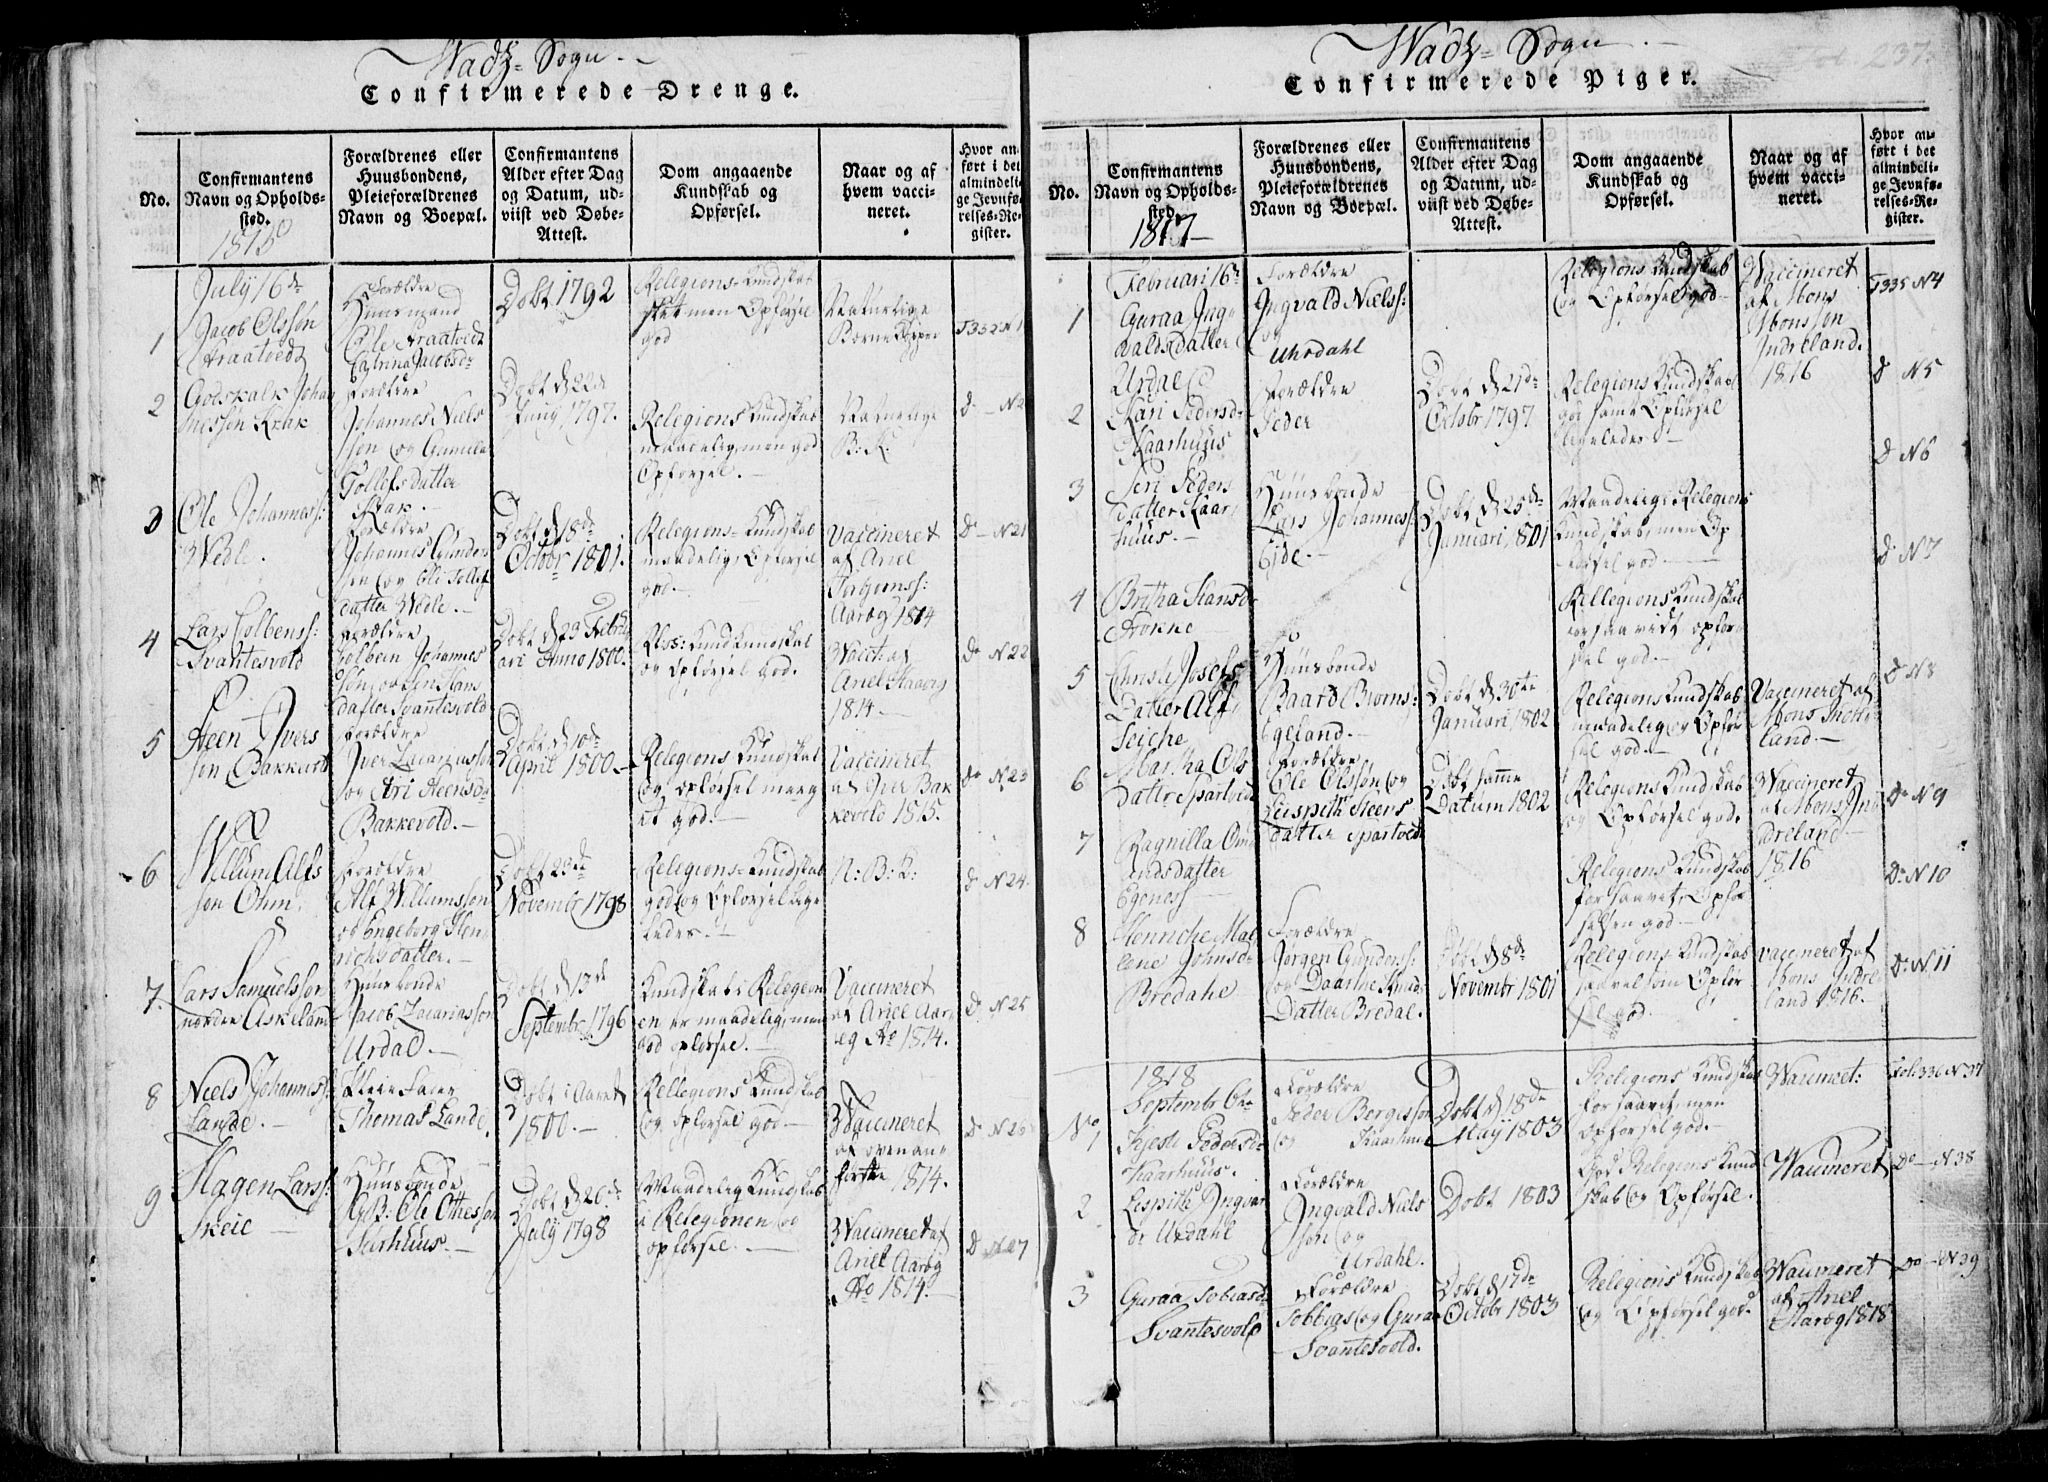 Wadz-Sogn.
Confirmerede Drenge.
No.
Confirmantens
Navn og Opholds-
sted.
1815
Forældrenes eller
Huusbondens,
Pleieforældrenes
Navn og Boepæl.
Confirmantens
Alder efter Dag
og Datum, ud-
viist ved Døbe-
Attest.
Dom angaaende
Kundskab og
Opførsel.
Naar og af
hvem vacci-
neret.
Hvor an-
ført i det
almindeli-
ge Jevnfø-
relses-Re-
gister.
July 16de
1
Jacob Olssøn
Forældre
Huusmand
Ole
Catrina Jacobsd:
Døbt 1792
Religions-Kundskab
slet men Opførsel
god
Naturlige
Børne Kopper
2
Godskalk Johan
nissøn Krak
Forældre
Johannes Niels
søn og Gunile
Tollefsdatter
Krak.
Døbt d 22de
Juny 1797.
Religions Kundskab
maadelig, men god
Opførsel.
Naturlige
B: K.
D - N 2
3
Ole Johanness:
Wedle.
Forældre
Johannes Gunder
sen og Eli Tollef
datter Wedle.
Døbt d 18de
Octobr 1801.
Religions-Kundskab
maadelig, Opførsel
god.
Vaccineret
af Ariel
Aarbg 1814
D - N 21
4
Lars Colbenss:
Svantesvold
Forældre
Colbein Johannes
datter Svantesvold
Døbt d 23 Febru
ari Anno 1800.
og Opførsel god.
Vacct: af
Ariel Aaberg
1814.
D N 22
5
Steen Ivers
søn Bakkevold
Forældre
Iver Zacariassøn
og Siri Steensd:
Bakkevold.
Døbt d 10de
April 1800.
Religions Kundskab
og Opførsel meeg
et god.
Vaccineret
af Iver Bak
kevold 1815.
D N 23
6
Willum Alfs
søn Ohm.
Forældre
Alf Willumssøn
og Engeborg Hen
richsdatter.
Døbt 23de
Novembr 1798
Religions-Kundskab
god og Opførsel lige
ledes.
N: B: K:
D N 24.
7.
Lars Samuelssøn
nordre Askeland
Huusbonde
Jacob Zacariassøn
Urdal.
Døbt d 13de
Septembr 1796
Kundskab i Religion
en er maadelig, men
god opførsel.
Vaccineret
af Ariel Aar
eg Ao 1814.
D N 25
8
Niels Johanness:
Lande.
Pleie Fader
Thomas Lande
Døbt i Aaret
1800.
Religions Kundskab
og Opførsel god.
Vaccineret
af ovenan
førte 1814.
D N 26
9
Hagen Larss:
Skeie
Huusbonde
Ole Othessøn
Døbt d 26de
July 1798
Maadelig Kundskab
i Religionen og
opførsel.
Vaccineret af
Ariel Aarbg
Ao 1814.
D N 27
Wadz-Sogn.
Fol 237.
Confirmerede Piger.
No.
Confirmantens
Navn og Opholds-
sted.
1817
Forældrenes eller
Huusbondens,
Pleieforældrenes
Navn og Boepæl.
Confirmantens
Alder efter Dag
og Datum, ud-
viist ved Døbe-
Attest.
Dom angaaende
Kundskab og
Opførsel.
Naar og af
hvem vacci-
neret.
Hvor an-
ført i det
almindeli-
ge Jevnfø-
relses-Re-
gister.
Februari 16de
1
Guraa Ing
valds datter
Urdal
Forældre
Ingvald Nielss:
og
Uhrdahl
Religions Kundskab
og Opførsel god
Vaccineret
af Mons
Monssøn
Indreland.
1816
F335 N4
2
Kari Pedersd:
Kaarhuus
Forældre
Peder
Døbt d 21de
Octobr 1797
Religions Kundskab
god samt Opførsel
ligeledes
D N5
3
Seri Peders
datter Kaar
huus.
Huusbonde
Lars Johanness:
Eide.
Døbt d 25de
Januari 1801
Maadelig Religions
Kundskab, men Op
førsel god
D N6
4
Britha Hansd:
Religions Kundskab
forsaavidt opfør
sel god.
D N7
5
Christi Josefs
datter Alf
Seiche
Huusbonde
Baard Biørns:
Egeland.
Døbt d 30te
Januari 1802
Religions Kundskab
maadelig og Opfør
sel god.
Vaccineret af
Mons Indre
land.
D N8
6
Martha Ols
datter Spartvedt
Forældre
Ole Olssøn og
Lispith Steens
datter Spartvedt
Døbt samme
Datum 1802
Religions Kundskab
og Opførsel god.
Vaccineret
af Mons In
dreland
1816
D N9
7
Ragnilla Om
undsdatter
Egenes
Religions Kundskab
forsaavet, Opfør
selsen god
D N10
8
Henriche Mal
lene Johnsd:
Bredahl
Forældre
Jørgen Gunderss:
og Daarthe Knud
Datter Bredal.
Døbt d 8de
Novembr 1801
Religions Kundskab
saavelsom Opfør
sel god.
vaccineret af
Mons Indre
land 1816.
D N.11
1818
Septembr
No
1
Kjesti Pedersd:
Kaarhuus.
Forældre
Peder Borgissøn
og Kaarhus
Døbt d 18de
May 1803
Religions Kundskab
forsaavet, men
opførsel god.
Vaccineet:
Fol: 336 N 37
2
Lispithe Ingvar
dr Urdahl
Forældre
Ingvald Niels
søn og
Urdahl.
Døbt 1803
God Religions Kund
skab og Opførsel.
Vaccineret
Do - N 38
3
Guraa Tobiasd:
Svantesvold
Forældre
Tobbias og Guraa
Svantesvold.
Døbt d 17de
Octobr 1803
Religions Kundskab
og Opførsel god.
Vaccineret
af Ariel
Aareg 1818
Do - N 39